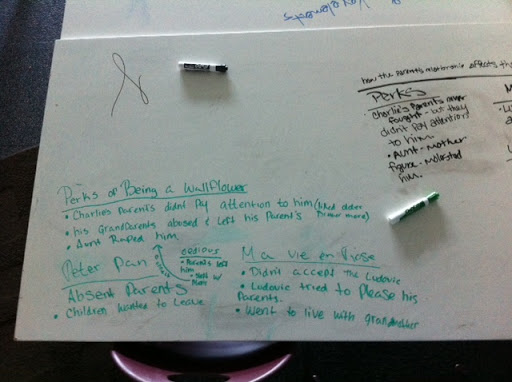 how the parent's relationship effects the
PERKS
Charlie's Parents never
fought - but they
didn't Pay attention
to him.
Aunt - Mother
figure - Molested
him.
Perks of Being a Wallflower
• Charlies Parents didnt Pay attention to him (liked older
more)
• his GrandParents abused & left his Parent's
• Aunt Raped him.
Peter Pan
Absent Parents
• Children wanted to Leave
• Parents left
him
Ma vie en Rose
• Didn't accept the Ludovic
• Ludovic tried to Please his
Parents.
• Went to live with grandmother